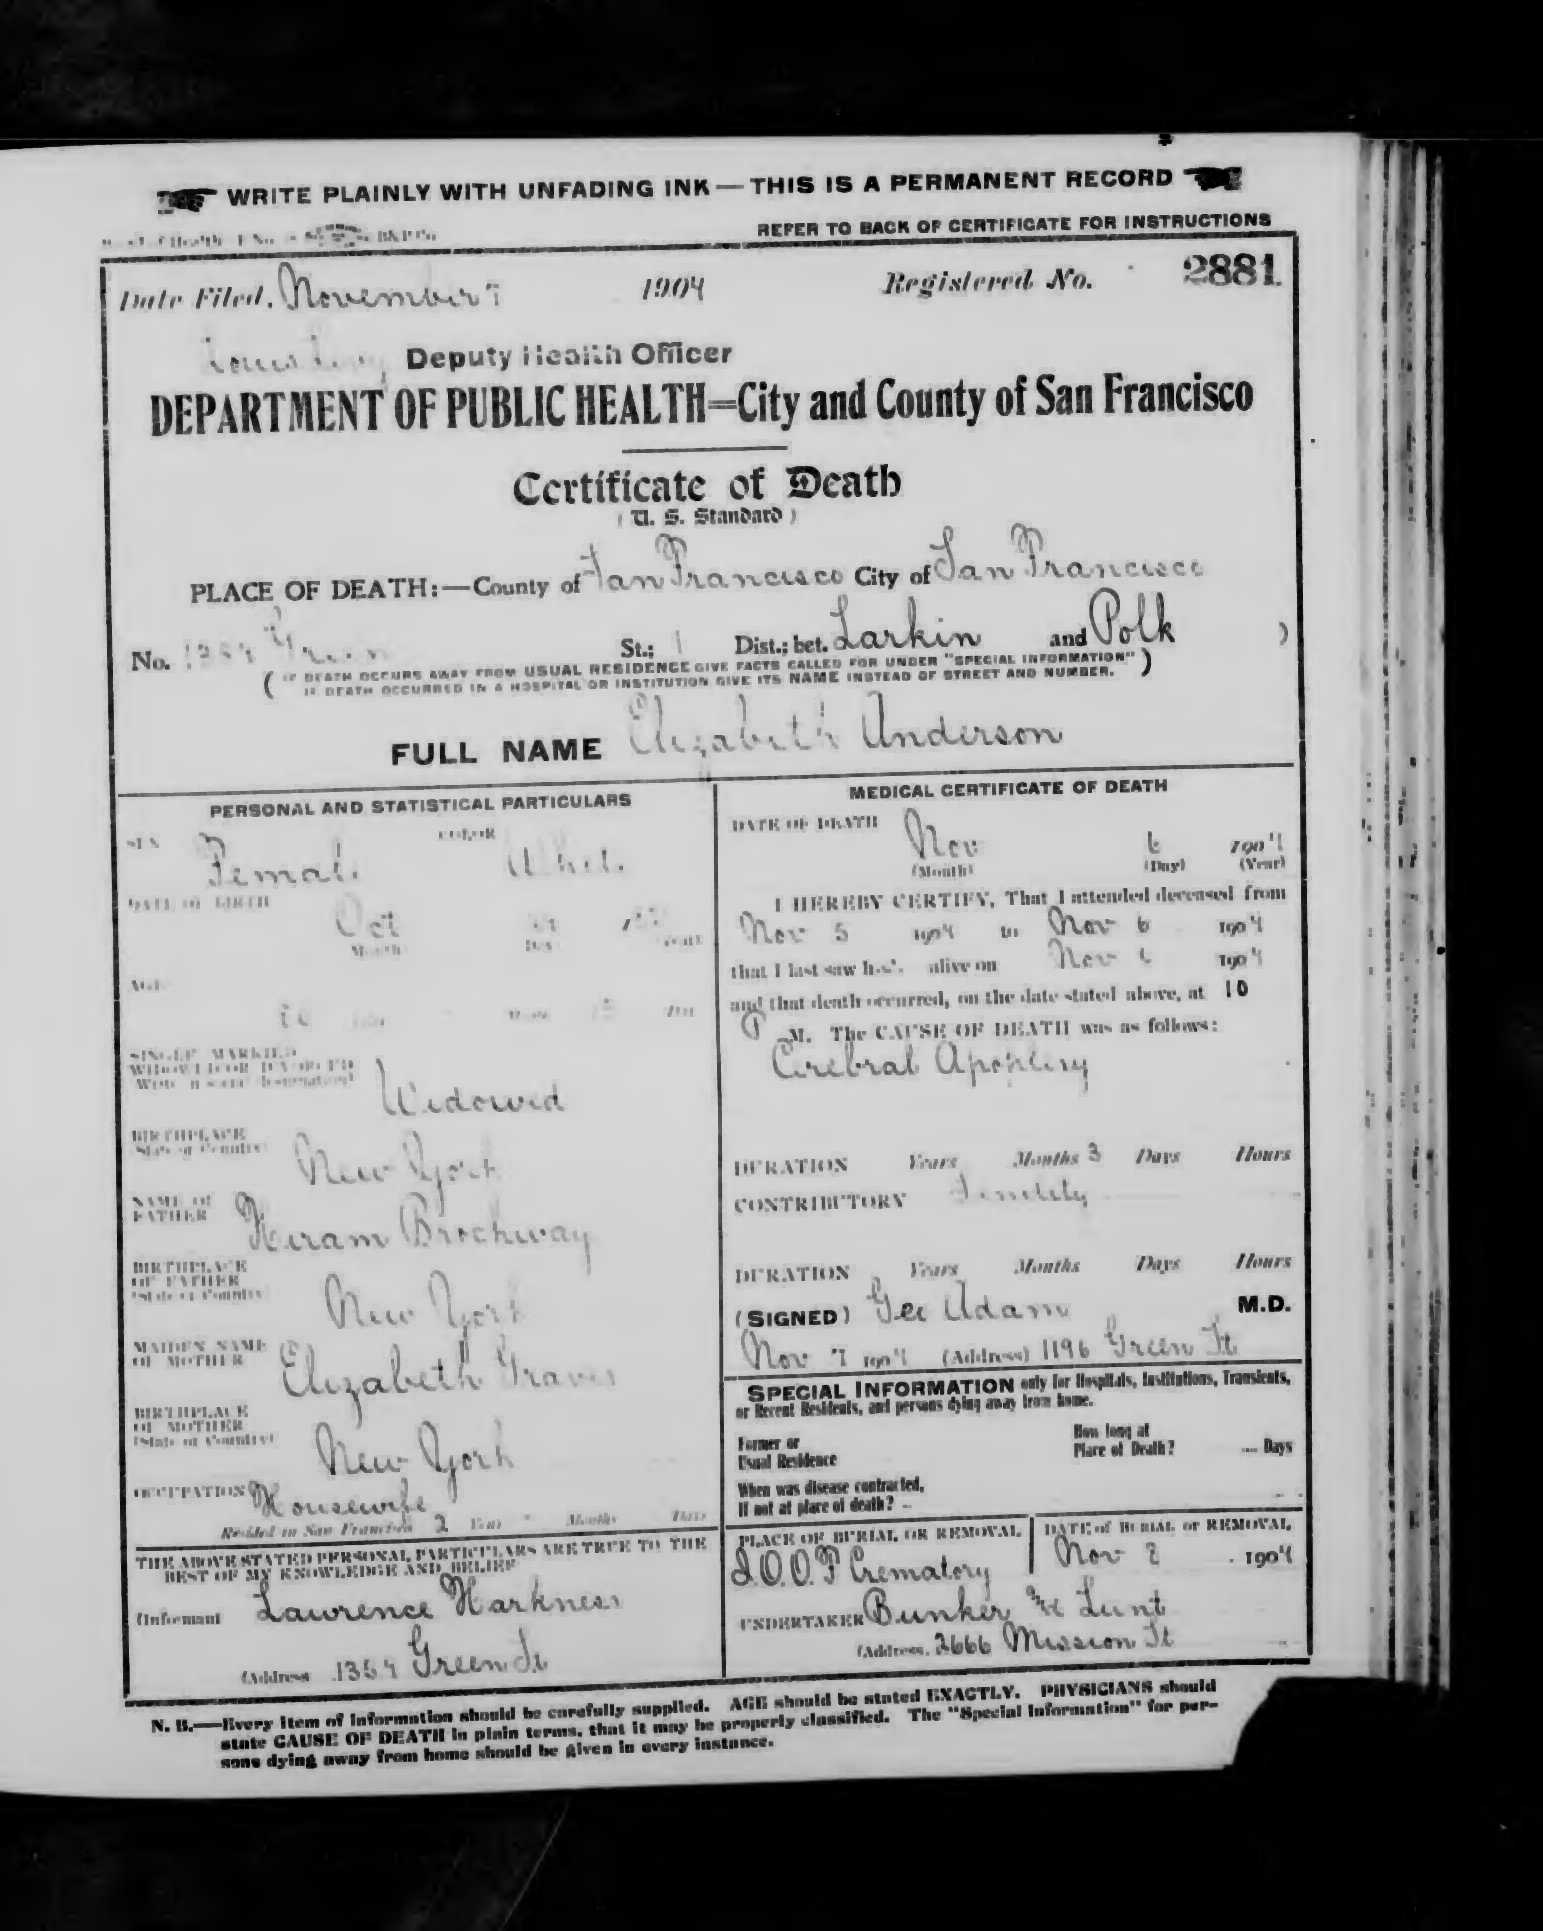 WRITE PLAINLY WITH UNFADING INK — THIS IS A PERMANENT RECORD
REFER TO BACK OF CERTIFICATE FOR INSTRUCTIONS
Date Filed, November 7 1904 Registered No. 2881
Deputy Health Officer
DEPARTMENT OF PUBLIC HEALTH=City and County of San Francisco
Certificate of Death
(U. S. Standard)
PLACE OF DEATH:—County of San Francisco City of San Francisco
No. Green St.; 1 Dist.; bet. Larkin and Polk )
( IF DEATH OCCURS AWAY FROM USUAL RESIDENCE GIVE FACTS CALLED FOR UNDER "SPECIAL INFORMATION" )
IF DEATH OCCURRED IN A HOSPITAL OR INSTITUTION GIVE ITS NAME INSTEAD OF STREET AND NUMBER.
FULL NAME Elizabeth Anderson
PERSONAL AND STATISTICAL PARTICULARS
SEX Female COLOR White
DATE OF BIRTH Oct
Month Day Year
AGE
SINGLE MARRIED
WIDOWED OR DIVORCED
Widowed
BIRTHPLACE
State or Country
New York
NAME OF
FATHER
Hiram Brockway
BIRTHPLACE
OF FATHER
(State or Country)
New York
MAIDEN NAME
OF MOTHER
Elizabeth Graves
BIRTHPLACE
OF MOTHER
(State or Country)
New York
OCCUPATION Housewife
Resided in San Francisco 2 Years Months Days
THE ABOVE STATED PERSONAL PARTICULARS ARE TRUE TO THE
BEST OF MY KNOWLEDGE AND BELIEF
(Informant Lawrence Harkness
(Address 1354 Green St
MEDICAL CERTIFICATE OF DEATH
DATE OF DEATH
Nov 6 1904
(Month) (Day) (Year)
I HEREBY CERTIFY, That I attended deceased from
Nov 5 1904 to Nov 6 1904
that I last saw her alive on Nov 6 1904
and that death occurred, on the date stated above, at 10
P M. The CAUSE OF DEATH was as follows:
Cerebral Apoplexy
DURATION Years Months 3 Days Hours
CONTRIBUTORY Senility
DURATION Years Months Days Hours
(SIGNED) Geo Adam M.D.
Nov 7 1904 (Address) 1196 Green St
SPECIAL INFORMATION only for Hospitals, Institutions, Transients,
or Recent Residents, and persons dying away from home.
Former or
Usual Residence
How long at
Place of Death? .... Days
When was disease contracted,
If not at place of death?
PLACE OF BURIAL OR REMOVAL
I.O.O.F Crematory
DATE of BURIAL or REMOVAL
Nov 8 1904
UNDERTAKER Bunker & Lunt
(Address, 2666 Mission St
N. B.—Every item of information should be carefully supplied. AGE should be stated EXACTLY. PHYSICIANS should
state CAUSE OF DEATH in plain terms, that it may be properly classified. The "Special Information" for per-
sons dying away from home should be given in every instance.